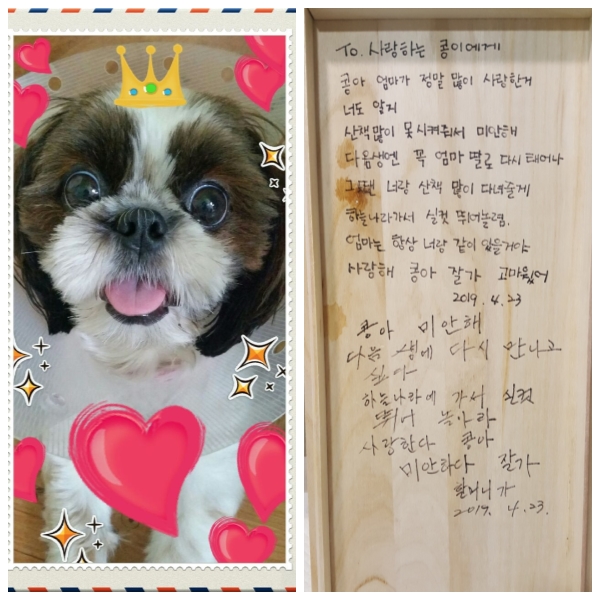 To. 사랑하는 콩이에게
콩아 엄마가 정말 많이 사랑한거
너도 알지
산책많이 못시켜줘서 미안해
다음생엔 꼭 엄마 딸로 다시 태어나
그땐 너랑 산책 많이 다녀줄게
하늘나라가서 실컷 뛰어놀렴.
엄마는 항상 너랑 같이 있을거야
사랑해 콩아 잘가 고마웠어
2019. 4. 23
콩아 미안해
다음 생에 다시 만나고
싶다
하늘나라에 가서 실컷
뛰어 놀아라
사랑한다 콩아
미안하다 잘가
할머니가
2019. 4. 23.